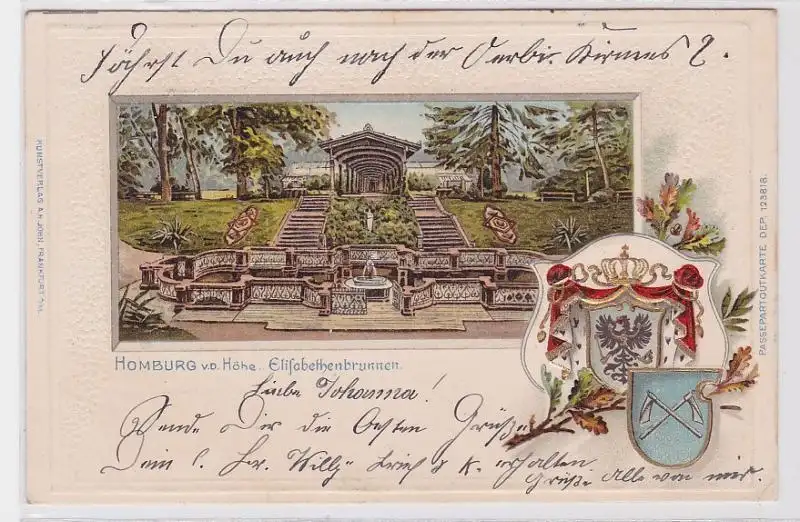 Fährst Du auch nach der Oerbi. Kirmes?.
KUNSTVERLAG A.H. JOHN, FRANKFURT a/M.
PASSEPARTOUTKARTE DEP. 123818.
HOMBURG v.D. Höhe. Elisabethenbrunnen.
Liebe Johanna!
Sende Dir die besten Grüße
Dein l. Br. Willy Brief & K. erhalten.
Grüße Alle von mir.